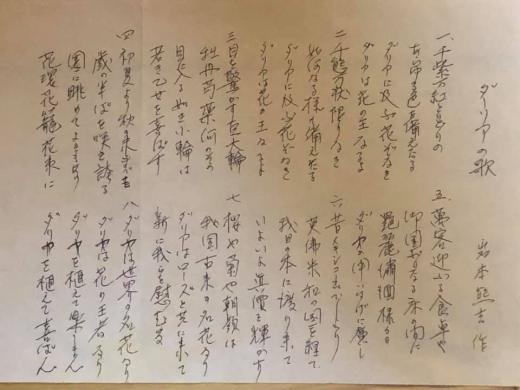 ダーリヤの歌
岩本熊吉 作
一、千紫万紅とりどりの
あらゆる色を備へたる
ダリヤに及ぶ花ぞなき
ダリヤは花の王なるよ
二、千態万状限りなき
如何なる様も備えたる
ダリヤに及ぶ花ぞなき
ダリヤは花の王なるよ
三、目を驚かす巨大輪
牡丹芍薬何のその
目に入る如き小輪は
若き乙女を喜ばす
四、初夏より秋の末迄も
歳の半ばを咲き誇る
園に眺めてよきものは
花環花籠花束に
五、萬客迎ふる食卓や
御国ぶりなる床の間に
艶麗優
ダリヤの用ゐは広し
六、昔メキシコを
英佛米和の国を経て
我日の本に渡り来て
いよいよ真價を輝かす
七、桜や菊や朝顔は
我国古来の名花なり
ダリヤはローズと共に来て
新に我らを慰むる
八、ダリヤは世界の名花なり
ダリヤは花の王者なり
ダリヤを植えて楽しまん
ダリヤを植えて喜ばん